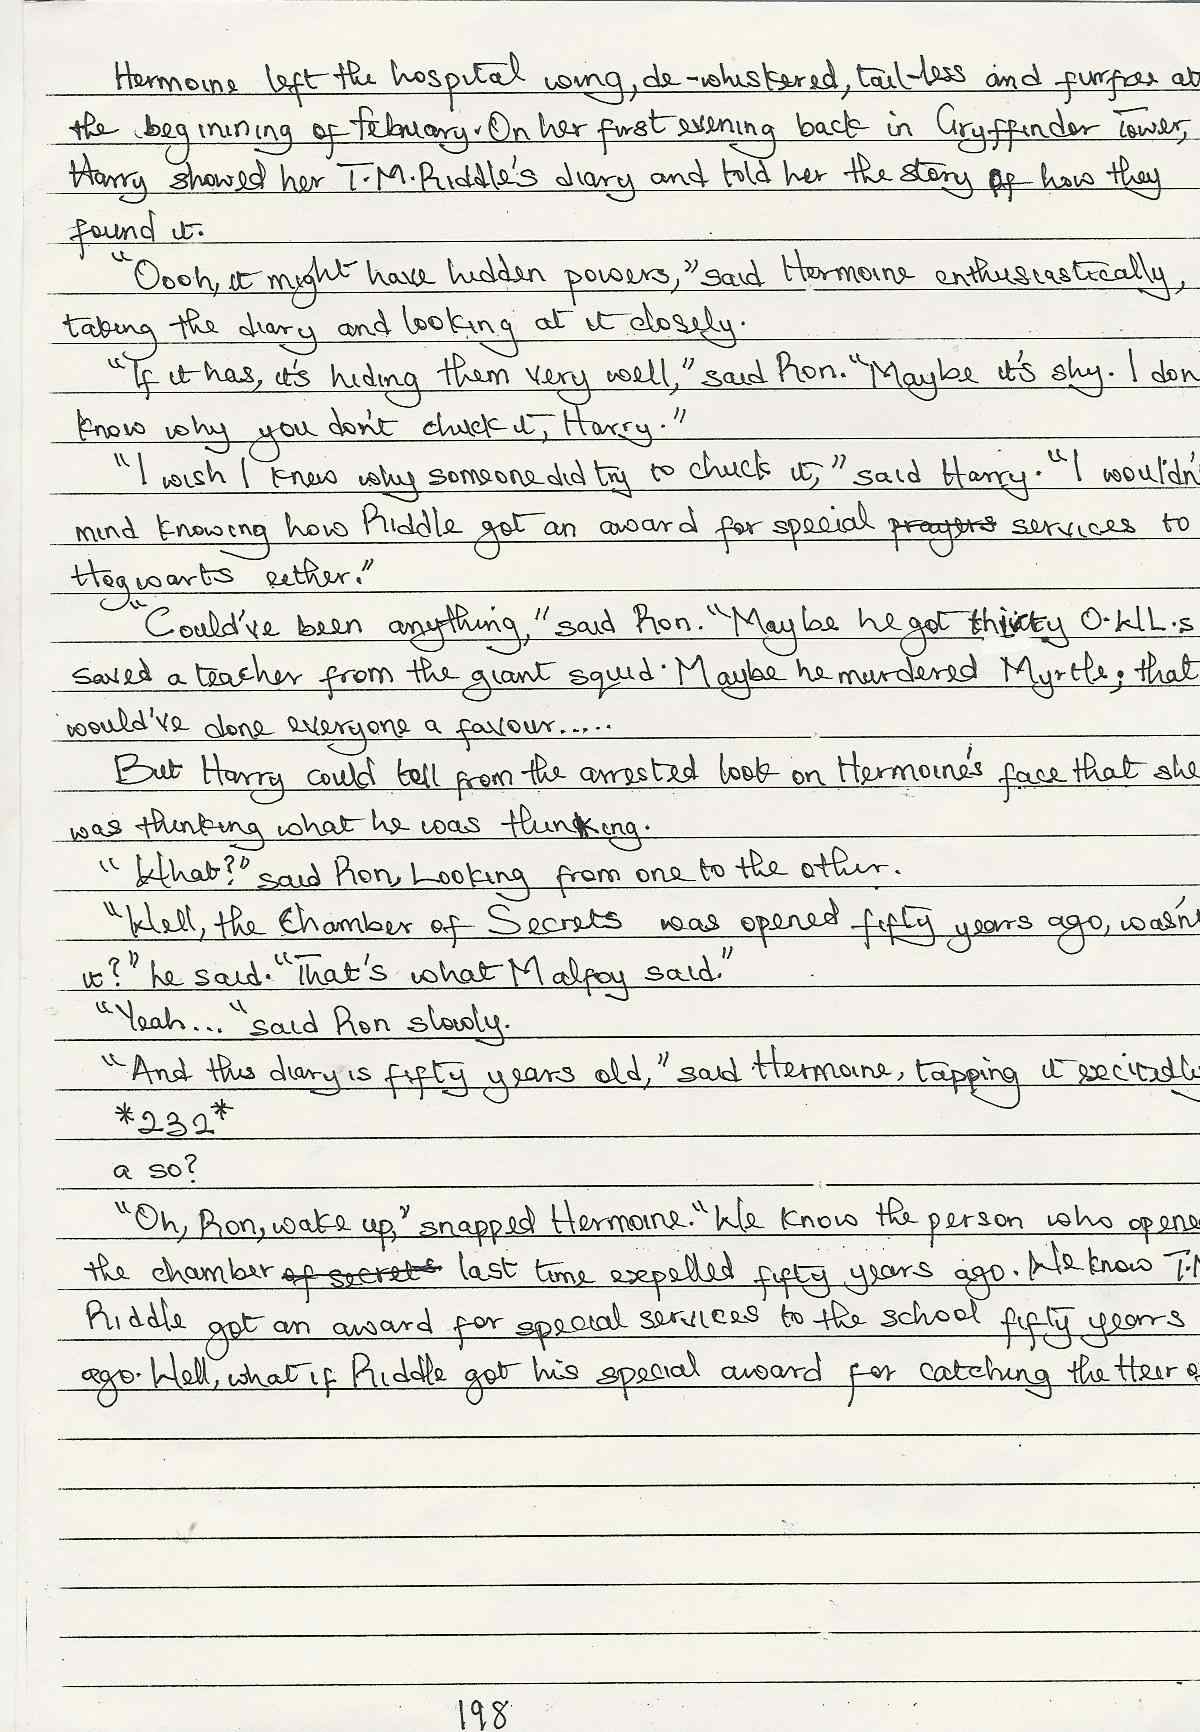 Hermoine left the hospital wing, de-whiskered, tail-less and furfree at
the beginining of february. On her first evening back in Gryffinder Tower,
Harry showed her T.M.Riddle's diary and told her the story of how they
found it.
"Oooh, it might have hidden powers," said Hermoine enthusiastically,
taking the diary and looking at it closely.
"If it has, it's hiding them very well," said Ron. "Maybe it's shy. I don
know why you don't chuck it, Harry."
"I wish I knew why someone did try to chuck it," said Harry. "I wouldn'
mind knowing how Riddle got an award for special prayers services to
Hogwarts eether."
"Could've been anything," said Ron. "Maybe he got thirty O.W.L.s
saved a teacher from the giant squid. Maybe he murdered Myrtle; that
would've done everyone a favour.....
But Harry could tell from the arrested look on Hermoine's face that she
was thinking what he was thinking.
"What?" said Ron, Looking from one to the other.
"Well, the Chamber of Secrets was opened fifty years ago, wasn'
it?" he said. "That's what Malfoy said."
"Yeah..." said Ron slowly.
"And this diary is fifty years old," said Hermoine, tapping it
*232*
a so?
"Oh, Ron, wake up," snapped Hermoine. "We know the person who opene
the chamber of secrets last time expelled fifty years ago. We know T.M
Riddle got an award for special services to the school fifty years
ago. Well, what if Riddle got his special award for catching the Heir o
198